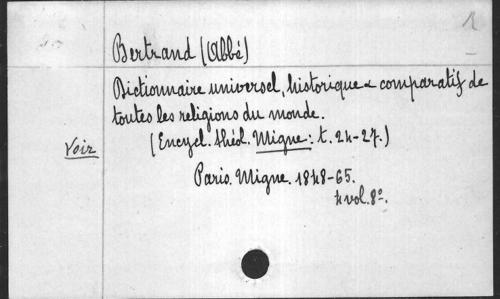 Bertrand (Abbé)
Dictionnaire universel, historique & comparatif de
toutes les religions du monde.
Voir (Encycl. théol. Migne: t. 24-27.)
Paris. Migne. 1848-65.
4 vol. 8°.